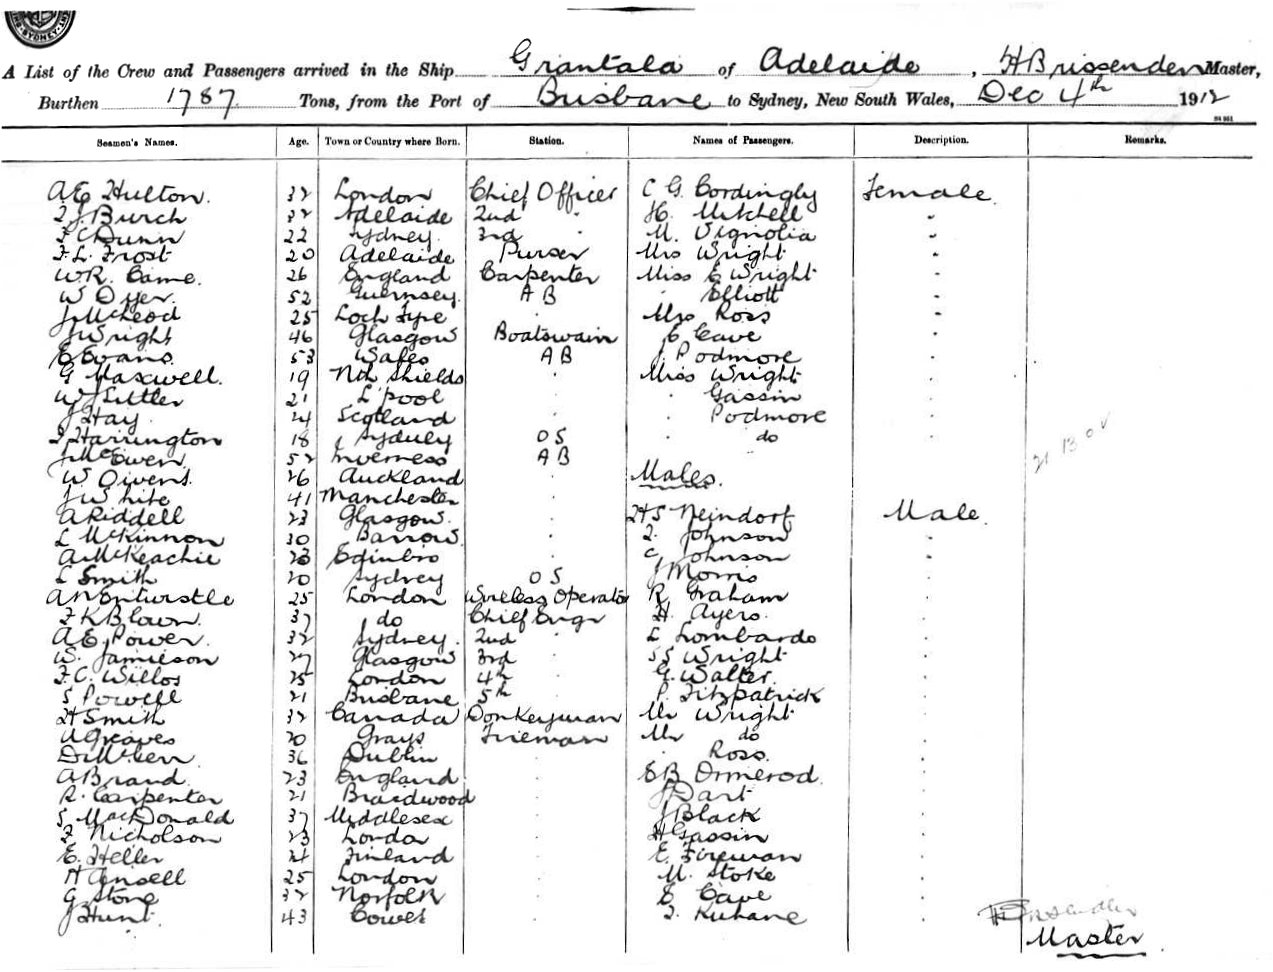 SYDNEY
A List of the Crew and Passengers arrived in the Ship Grantala of Adelaide, H Brissenden Master,
Burthen 1787 Tons, from the Port of Brisbane to Sydney, New South Wales, Dec 4th 1912
Seamen's Names. Age. Town or Country where Born. Station. Names of Passengers. Description. Remarks.
A E Hulton. 32 London Chief Officer C G. Cordingly Female.
Burch 32 Adelaide 2nd " H. Mitchell "
Dunn 22 Sydney. 3rd " M. Vignolia "
F. L. Frost 20 Adelaide Purser Mrs Wright "
W. R. Came. 26 England Carpenter Miss E Wright "
W Dyer. 52 Guernsey. A B " Elliott "
J McLeod 25 Loch Fyne " Mrs Ross "
J Wright 46 Glasgow Boatswain E Cave "
E Evans. 53 Wales A B J. Podmore "
G Maxwell. 19 Nth Shields " Miss Wright "
W Littler 21 L'pool " " Gassin "
J Hay. 24 Scotland " " Podmore "
Harrington 18 Sydney O S " do "
J McEwen 52 Inverness A B
W. Owens. 26 Auckland " Males.
J White 41 Manchester "
A Riddell 23 Glasgow. " Neindorf Male.
L McKinnon 30 Barrow. " Johnson "
A McKeachie 23 Edinbro " C Johnson "
L Smith 20 Sydney O S J Morris "
A N Entwistle 25 London Wireless Operator R Graham "
F K Blown. 37 do Chief Engr H. Ayers. "
A. E. Power. 32 Sydney. 2nd " L Lombardo "
W. Jamieson 27 Glasgow 3rd " S S Wright "
F. C. Willos 25 London 4th " G. Walter. "
S Powell 21 Brisbane 5th " P. Fitzpatrick "
H Smith 32 Canada Donkeyman Mr Wright "
A Greaves 20 Grays Fireman Mr do "
36 Dublin " " Ross. "
A Brand. 23 England. " E B Ormerod. "
R. Carpenter 21 Braidwood " J Dart "
S MacDonald 37 Middlesex " J Black "
F Nicholson 23 London " H Gassin "
E. Heller 24 Finland " E. Fireman "
H Ansell 25 London " M. Stoke "
G. Stone 32 Norfolk " E Cave "
J Hunt. 43 Cowes " Kuhane "
Master.